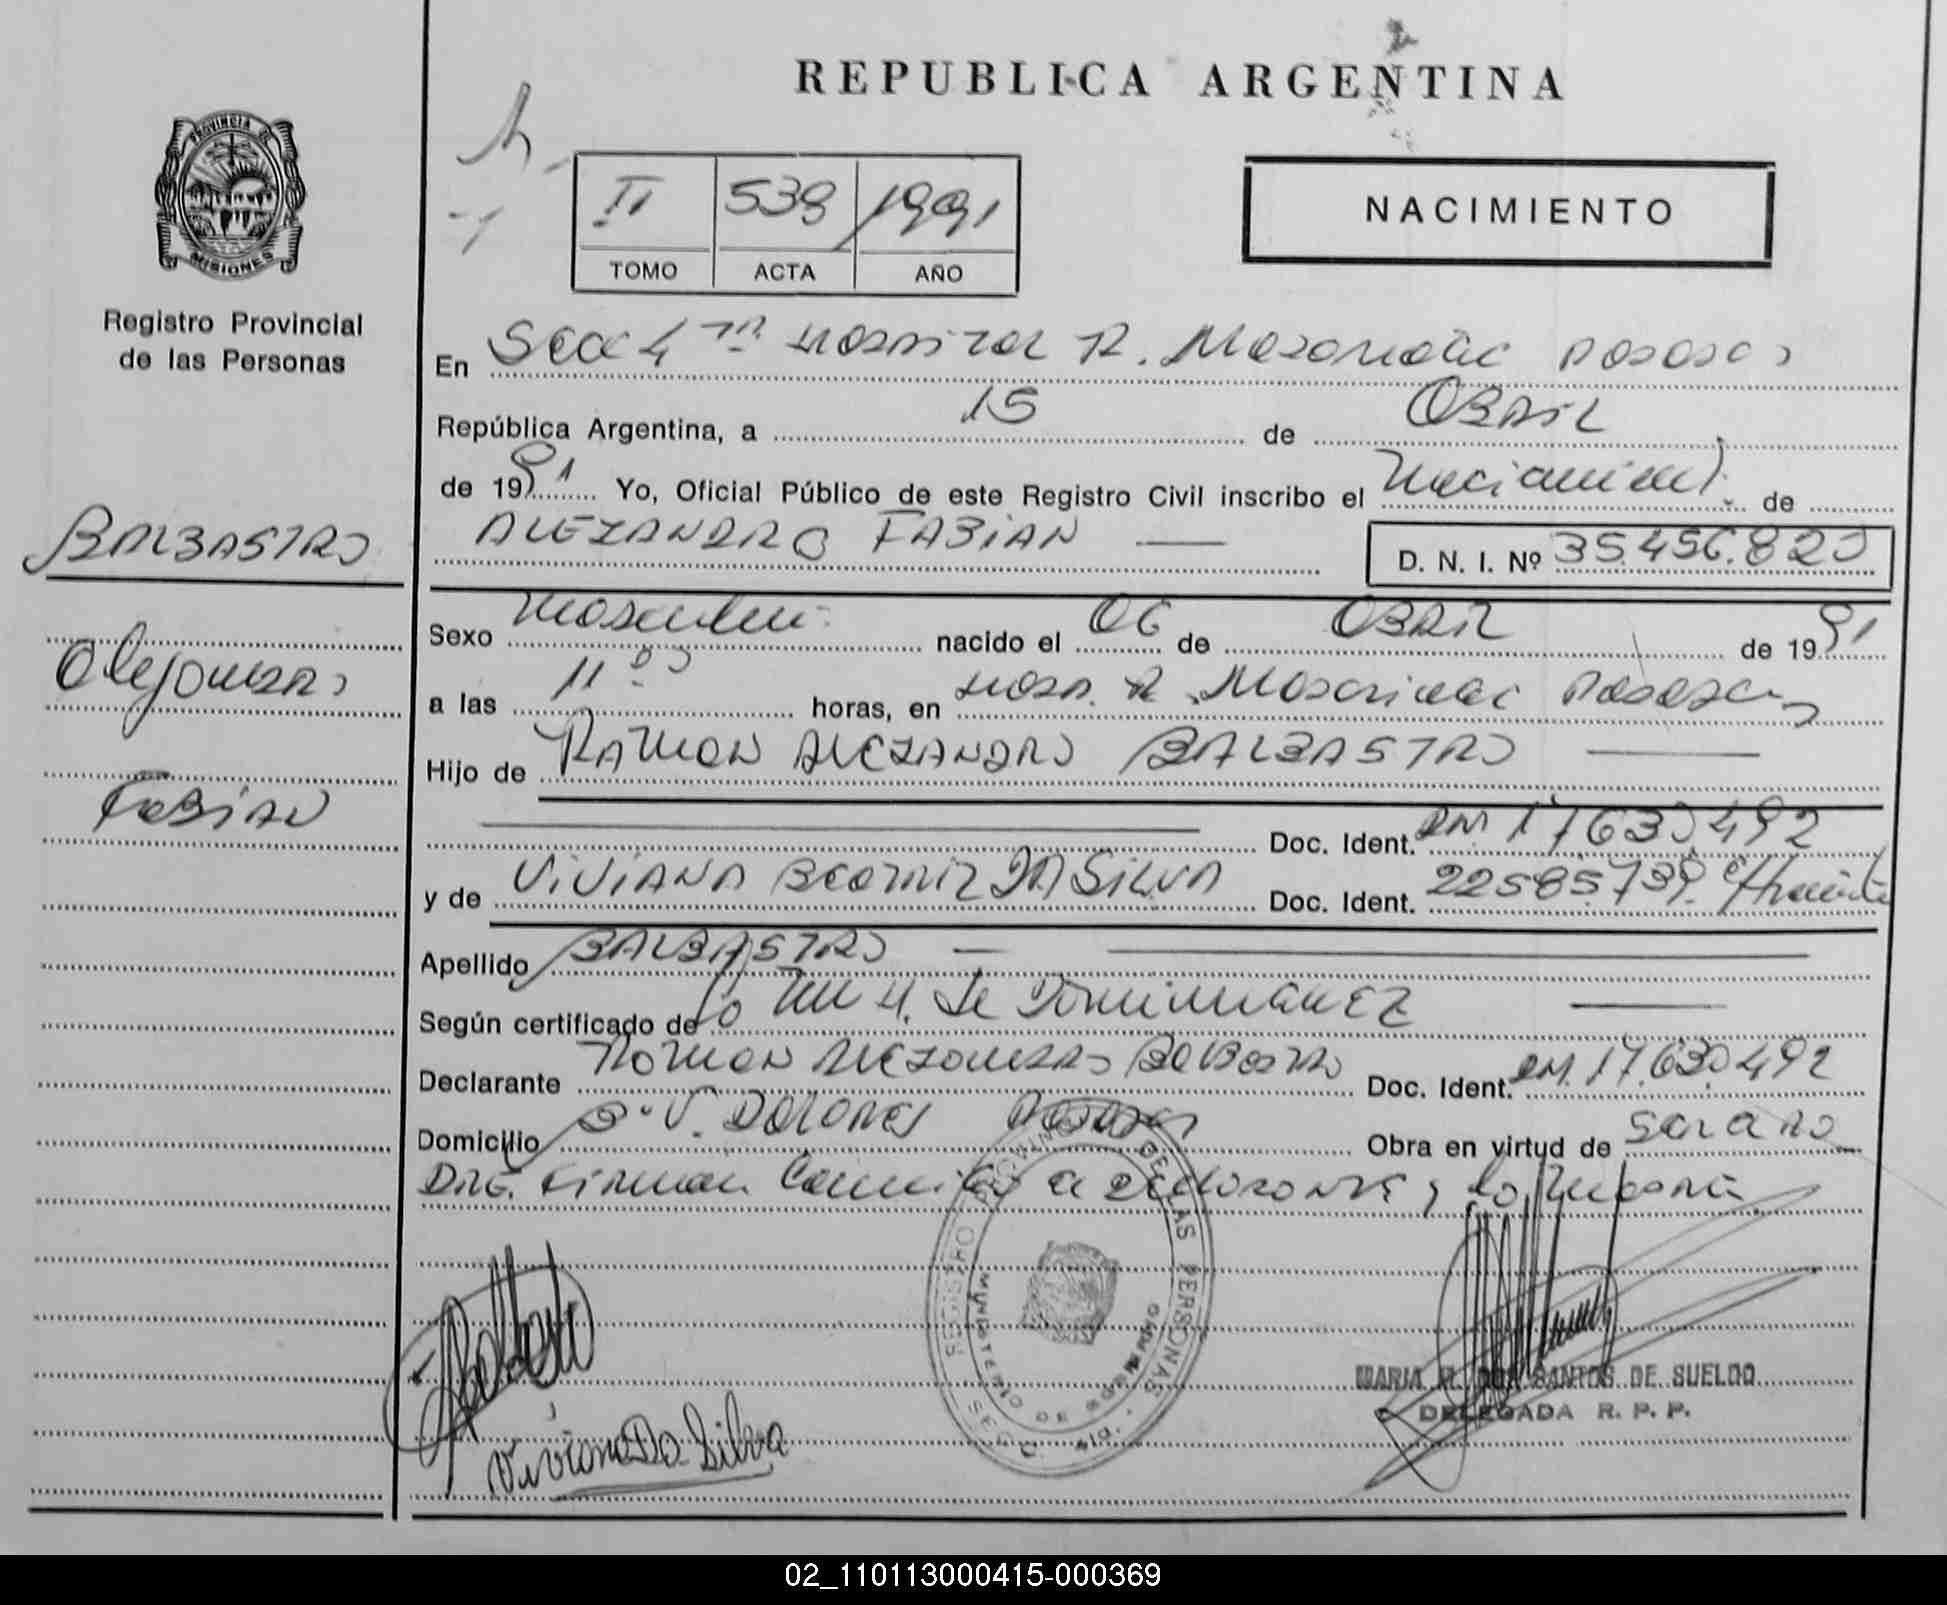 REPUBLICA ARGENTINA
PROVINCIA DE
MISIONES
Registro Provincial
de las Personas
II 539 1991
TOMO ACTA AÑO
NACIMIENTO
En Hospital R. Madariaga Posadas
República Argentina, a 15 de Abril
de 1991 Yo, Oficial Público de este Registro Civil inscribo el Nacimient. de
ALEJANDRO FABIAN
D. N. I. Nº 35.456.820
BALBASTRO
Alejandro
Fabian
Sexo Masculino nacido el 06 de Abril de 1991
a las 11 horas, en Hosp. R. Madariaga Posadas
Hijo de RAMON ALEJANDRO BALBASTRO
Doc. Ident. DNI 17630492
y de VIVIANA BEATRIZ DA SILVA Doc. Ident. 22585739
Apellido BALBASTRO
Según certificado de DOMINGUEZ
Declarante RAMON ALEJANDRO BALBASTRO Doc. Ident. DNI. 17.630492
Domicilio B° V. DOLORES Posadas Obra en virtud de
Firman el declarante y
REGISTRO PROVINCIAL DE LAS PERSONAS
Viviana Da Silva
MARIA DOS SANTOS DE SUELDO
DELEGADA R. P. P.
02_110113000415-000369